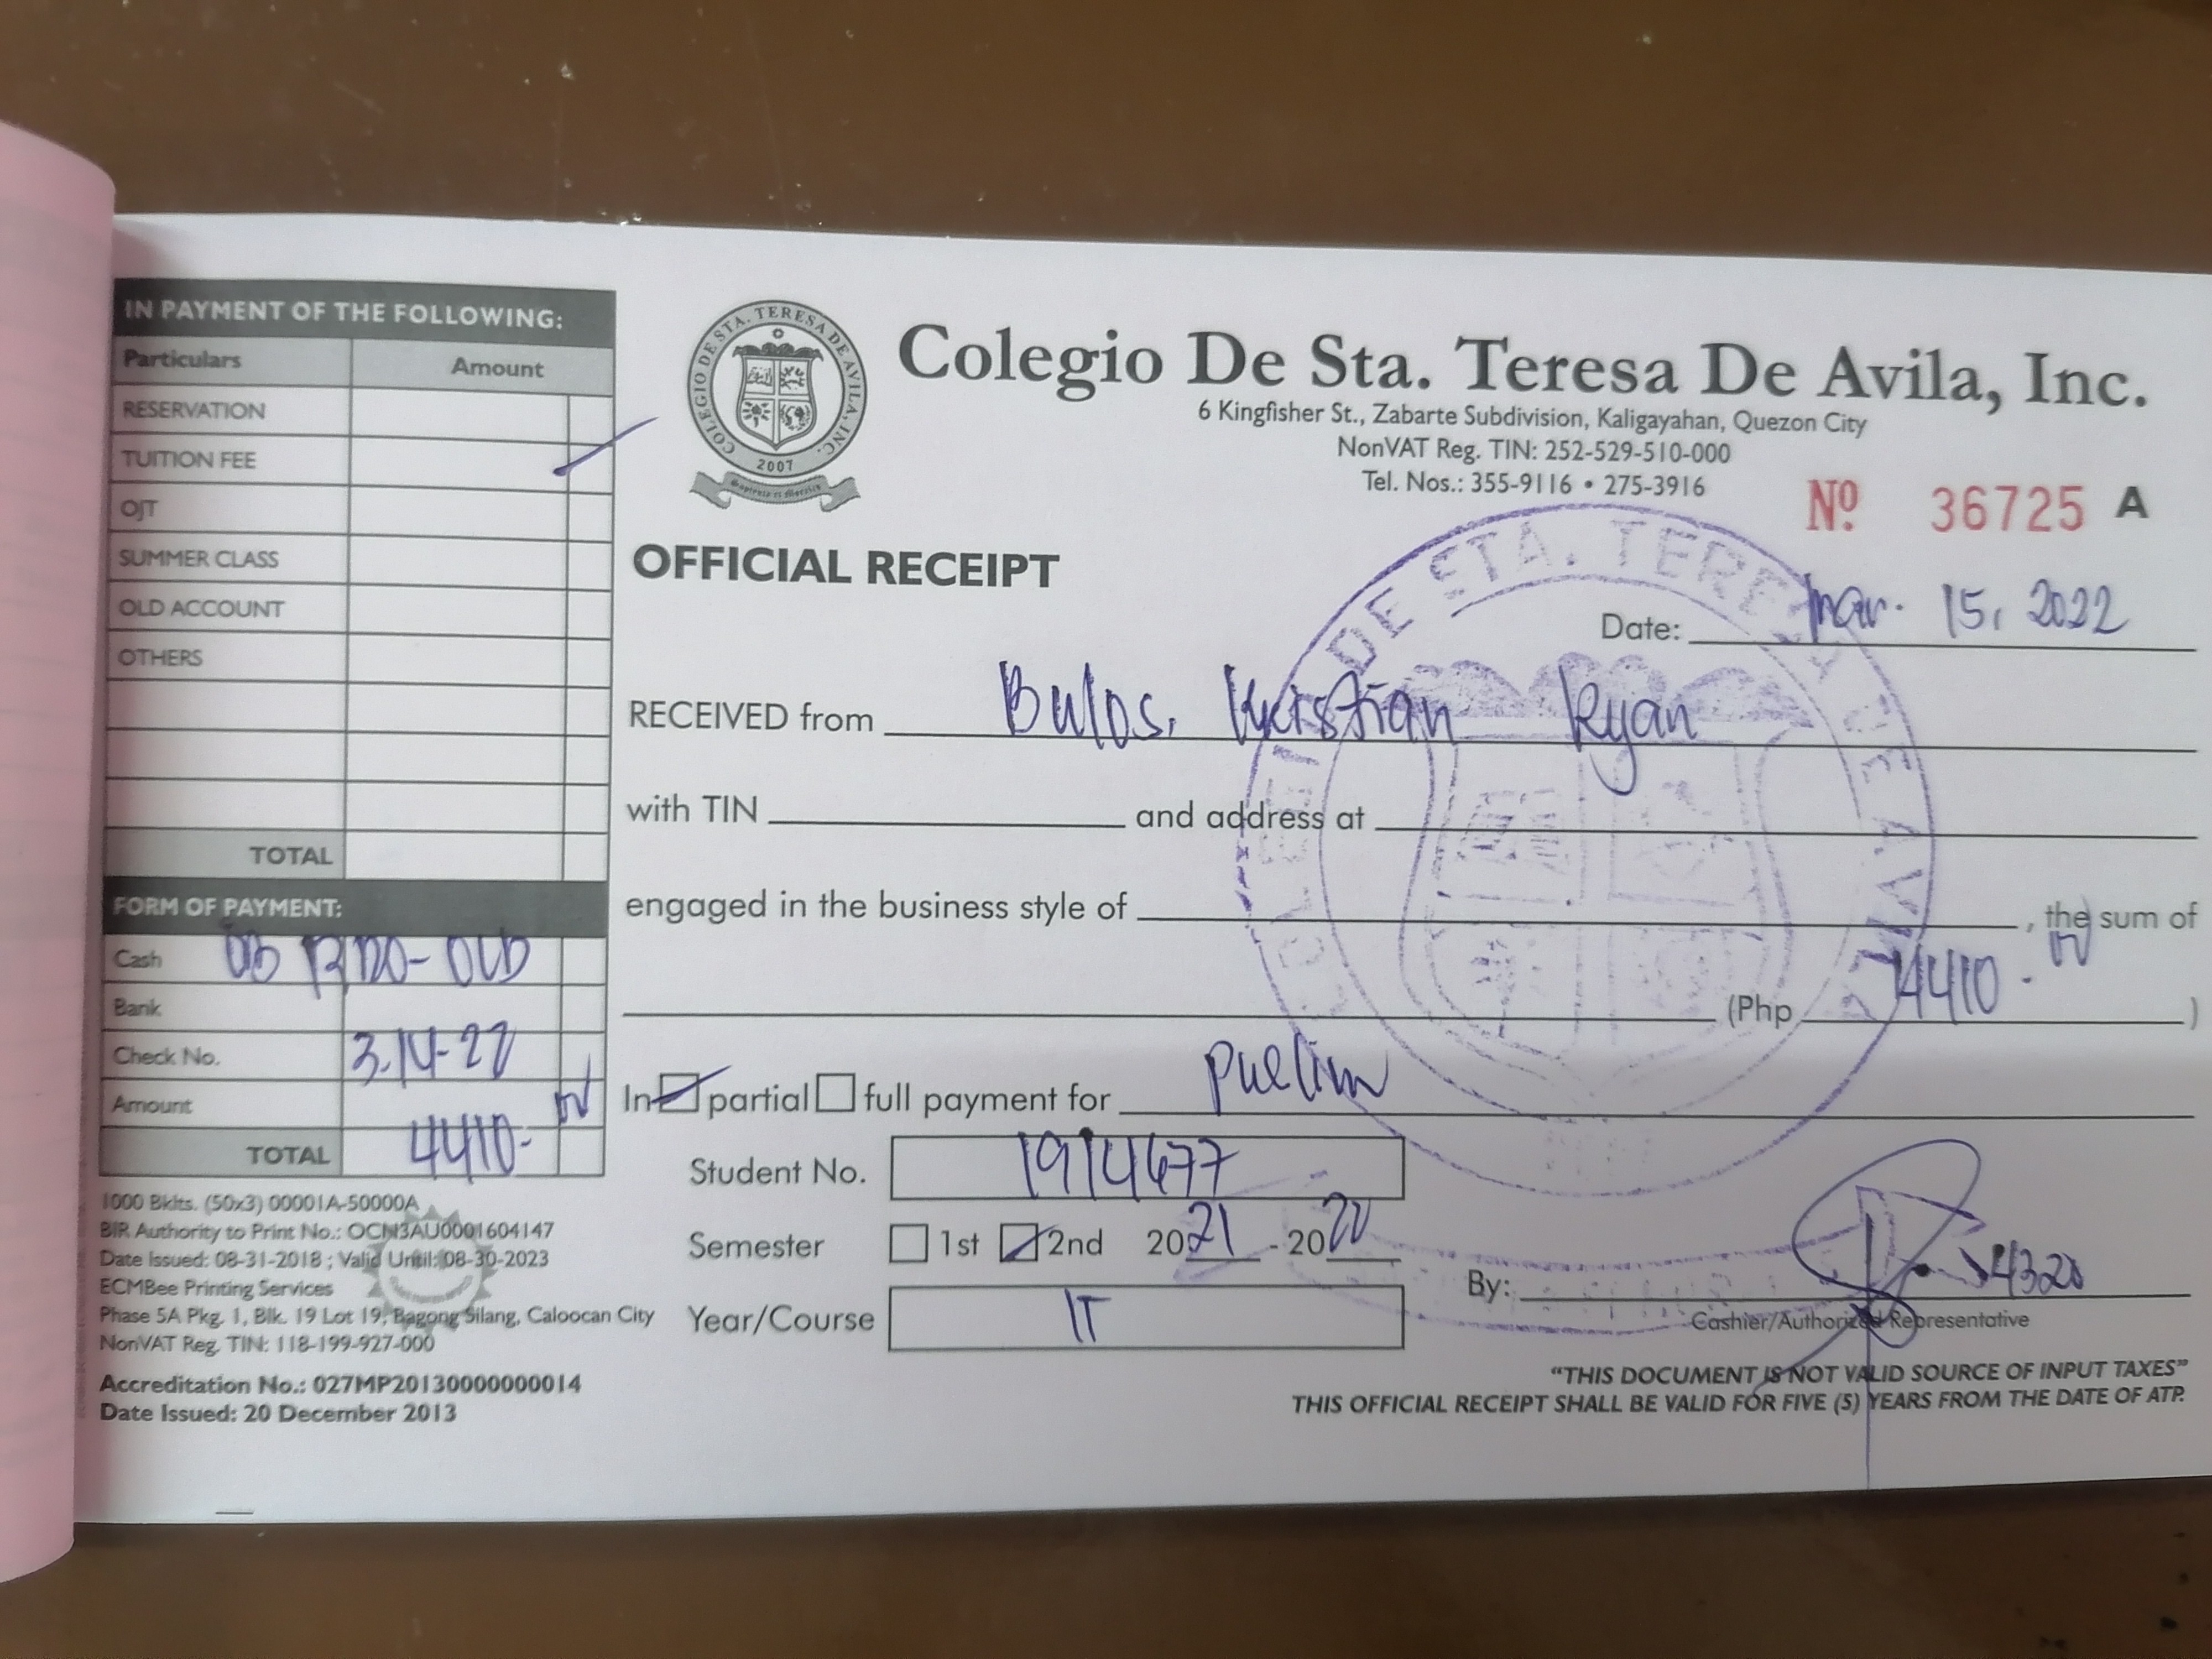 IN PAYMENT OF THE FOLLOWING:
Particulars Amount
RESERVATION
TUITION FEE
OJT
SUMMER CLASS
OLD ACCOUNT
OTHERS
TOTAL
FORM OF PAYMENT:
Cash
Bank
Check No. 3-14-22
Amount
TOTAL 4410-
1000 Bklts. (50x3) 00001A-50000A
BIR Authority to Print No.: OCN3AU0001604147
Date Issued: 08-31-2018 ; Valid Until: 08-30-2023
ECMBee Printing Services
Phase 5A Pkg. 1, Blk. 19 Lot 19, Bagong Silang, Caloocan City
NonVAT Reg. TIN: 118-199-927-000
Accreditation No.: 027MP20130000000014
Date Issued: 20 December 2013
COLEGIO DE STA. TERESA DE AVILA, INC.
2007
Colegio De Sta. Teresa De Avila, Inc.
6 Kingfisher St., Zabarte Subdivision, Kaligayahan, Quezon City
NonVAT Reg. TIN: 252-529-510-000
Tel. Nos.: 355-9116 • 275-3916
Nº 36725 A
OFFICIAL RECEIPT
Date: Mar. 15, 2022
RECEIVED from Bulos, Kristian Ryan
with TIN and address at
engaged in the business style of , the sum of
(Php 4410- )
In partial full payment for Prelim
Student No. 1914677
Semester 1st 2nd 2021 - 2022
Year/Course IT
By:
Cashier/Authorized Representative
"THIS DOCUMENT IS NOT VALID SOURCE OF INPUT TAXES"
THIS OFFICIAL RECEIPT SHALL BE VALID FOR FIVE (5) YEARS FROM THE DATE OF ATP.